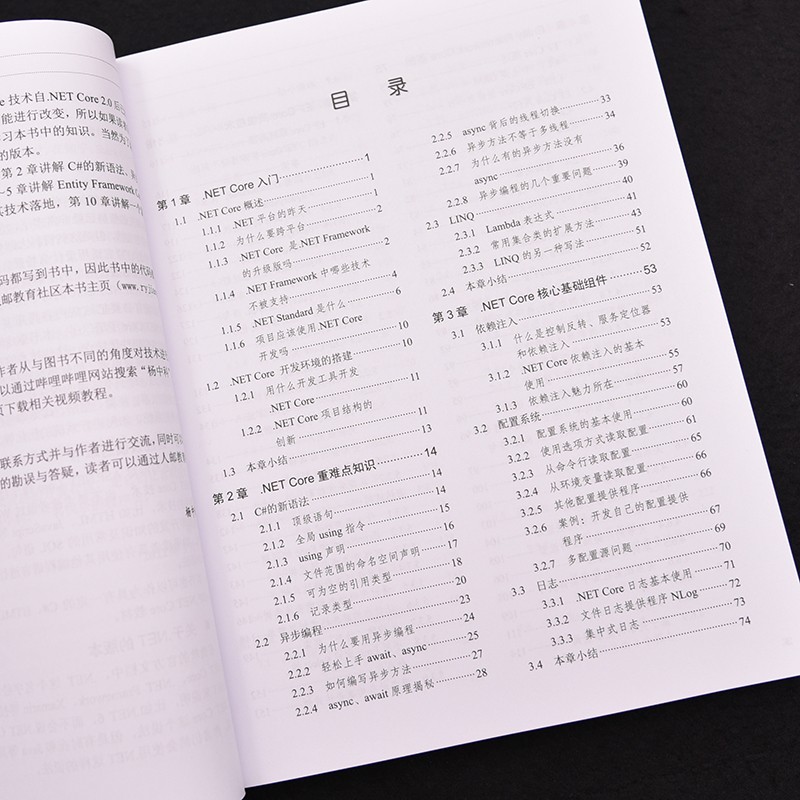 e 技术自.NET Core 2.0 后
能进行改变，所以如果读
习本书中的知识。当然为
的版本。
第 2 章讲解 C#的新语法、
~5 章讲解 Entity Framework
其技术落地，第 10 章讲解一
码都写到书中，因此书中的代码
邮教育社区本书主页（www.ryj
作者从与图书不同的角度对技术
以通过哔哩哔哩网站搜索“杨中
页下载相关视频教程。
联系方式并与作者进行交流，同时可
的勘误与答疑，读者可以通过人邮教
目 录
第 1 章 .NET Core 入门 1
1.1 .NET Core 概述 1
1.1.1 .NET 平台的昨天 1
1.1.2 为什么要跨平台 2
1.1.3 .NET Core 是.NET Framework
的升级版吗 2
1.1.4 .NET Framework 中哪些技术
不被支持 4
1.1.5 .NET Standard 是什么 6
1.1.6 项目应该使用.NET Core
开发吗 10
1.2 .NET Core 开发环境的搭建 10
1.2.1 用什么开发工具开发
.NET Core 10
1.2.2 .NET Core 项目结构的
创新 11
1.3 本章小结 13
第 2 章 .NET Core 重难点知识 14
2.1 C#的新语法 14
2.1.1 顶级语句 14
2.1.2 全局 using 指令 15
2.1.3 using 声明 16
2.1.4 文件范围的命名空间声明 17
2.1.5 可为空的引用类型 18
2.1.6 记录类型 20
2.2 异步编程 23
2.2.1 为什么要用异步编程 24
2.2.2 轻松上手 await、async 25
2.2.3 如何编写异步方法 27
2.2.4 async、await 原理揭秘 28
2.2.5 async 背后的线程切换 33
2.2.6 异步方法不等于多线程 34
2.2.7 为什么有的异步方法没有
async 36
2.2.8 异步编程的几个重要问题 39
2.3 LINQ 40
2.3.1 Lambda 表达式 41
2.3.2 常用集合类的扩展方法 43
2.3.3 LINQ 的另一种写法 51
2.4 本章小结 52
第 3 章 .NET Core 核心基础组件 53
3.1 依赖注入 53
3.1.1 什么是控制反转、服务定位器
和依赖注入 53
3.1.2 .NET Core 依赖注入的基本
使用 55
3.1.3 依赖注入魅力所在 57
3.2 配置系统 60
3.2.1 配置系统的基本使用 60
3.2.2 使用选项方式读取配置 61
3.2.3 从命令行读取配置 64
3.2.4 从环境变量读取配置 65
3.2.5 其他配置提供程序 66
3.2.6 案例：开发自己的配置提供
程序 67
3.2.7 多配置源问题 69
3.3 日志 70
3.3.1 .NET Core 日志基本使用 71
3.3.2 文件日志提供程序 NLog 72
3.3.3 集中式日志 73
3.4 本章小结 74